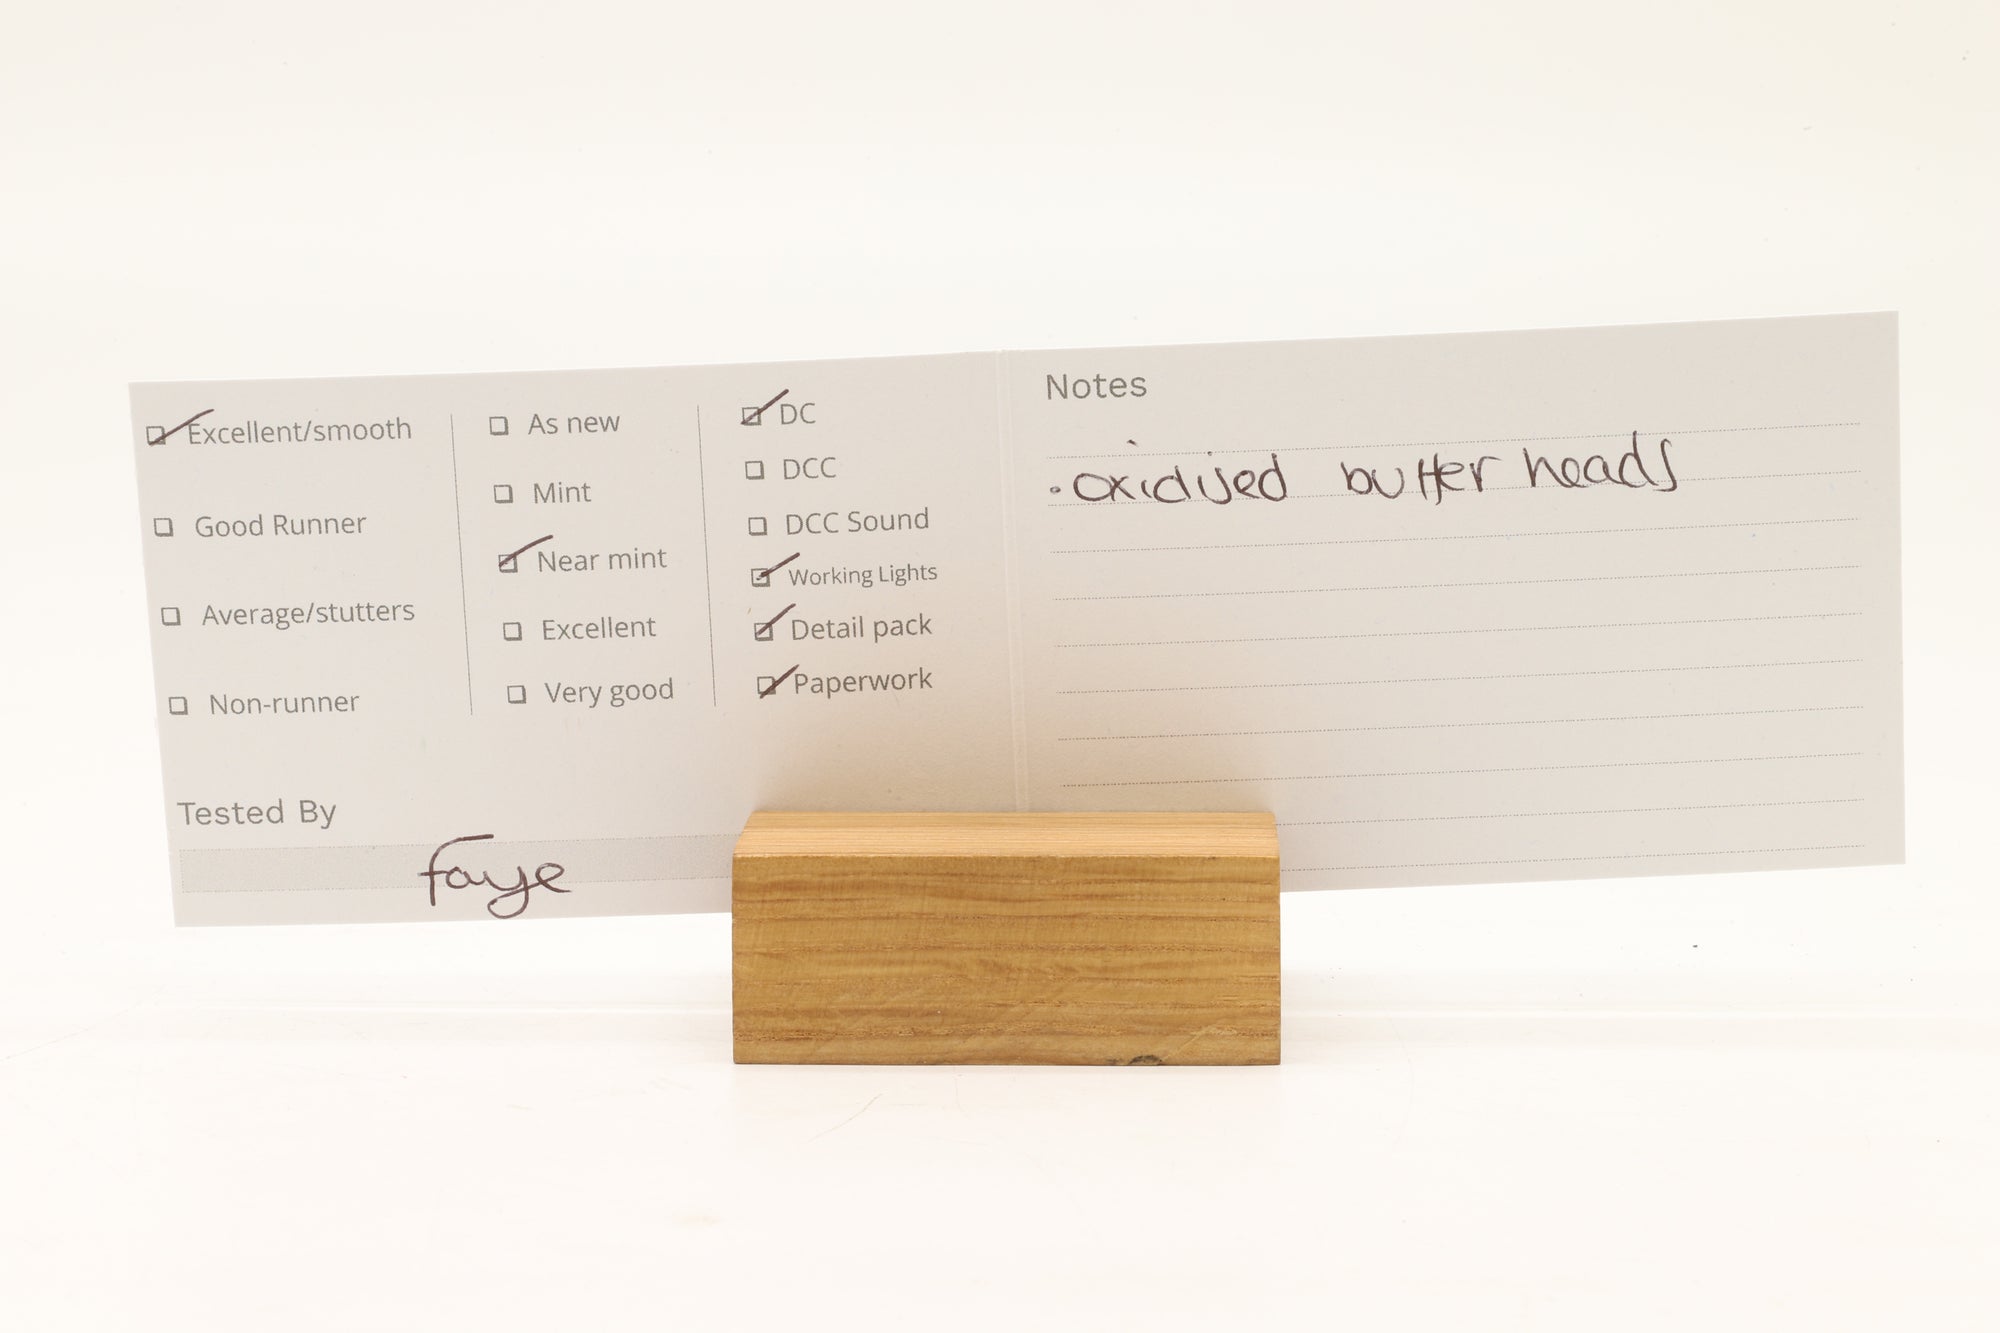 Excellent/smooth
Good Runner
Average/stutters
Non-runner
As new
Mint
Near mint
Excellent
Very good
DC
DCC
DCC Sound
Working Lights
Detail pack
Paperwork
Tested By
Faye
Notes
• oxidised buffer heads